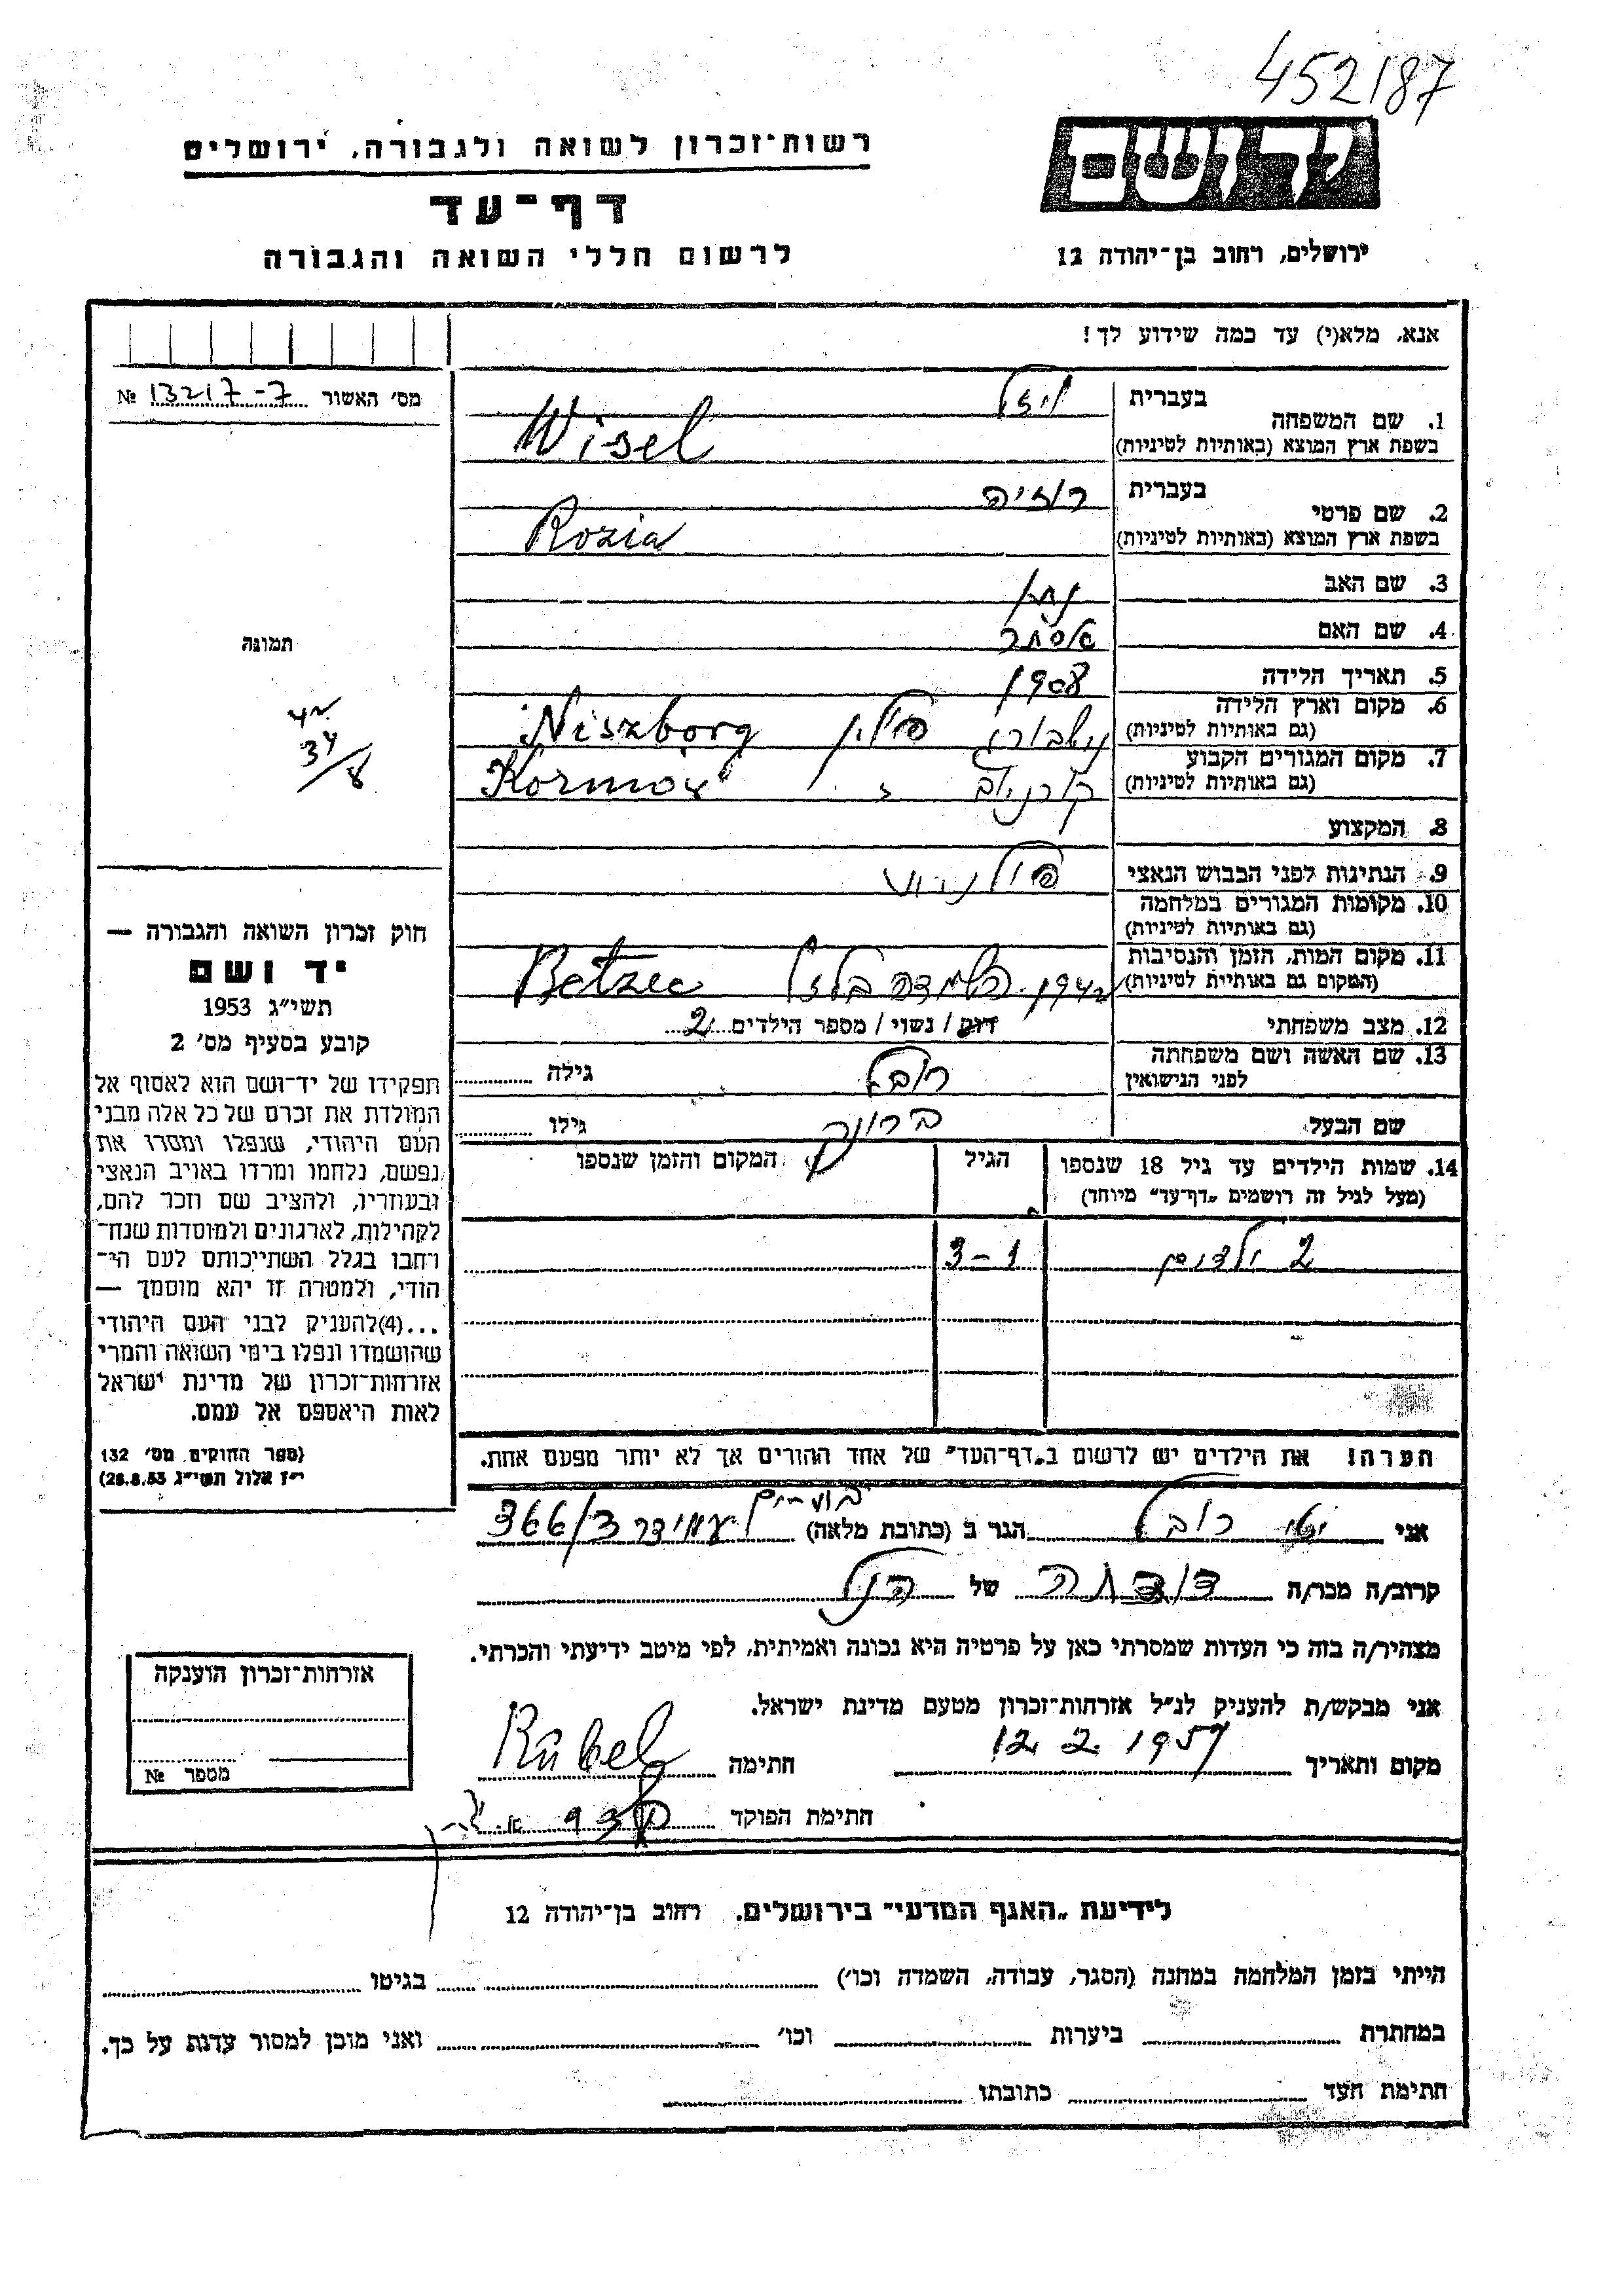 452187
רשות־זכרון לשואה ולגבורה, ירושלים
דף־עד
לרשום חללי השואה והגבורה
ירושלים, רחוב בן־יהודה 12
אנא, מלא(י) עד כמה שידוע לך!
מס׳ האשור № 13217-7
1. שם המשפחה בעברית ויזל
בשפת ארץ המוצא (באותיות לטיניות) Wisel
2. שם פרטי בעברית רוזיה
בשפת ארץ המוצא (באותיות לטיניות) Rozia
3. שם האב נתן
4. שם האם אסתר
5. תאריך הלידה 1908
6. מקום וארץ הלידה
(גם באותיות לטיניות) נישבורג פולין Niszborg
7. מקום המגורים הקבוע
(גם באותיות לטיניות) Kormów
8. המקצוע
9. הנתינות לפני הכבוש הנאצי פולנית
10. מקומות המגורים במלחמה
(גם באותיות לטיניות)
11. מקום המות, הזמן והנסיבות
(המקום גם באותיות לטיניות) 1942 השמדה בלזץ Betzec
12. מצב משפחתי רוק / נשוי / מספר הילדים 2
13. שם האשה ושם משפחתה
לפני הנישואין רובל גילה
שם הבעל ברונק גילו
14. שמות הילדים עד גיל 18 שנספו הגיל המקום והזמן שנספו
(מעל לגיל זה רושמים „דף־עד״ מיוחד)
2 ילדים 1-3
הערה! את הילדים יש לרשום ב„דף־העד״ של אחד ההורים אך לא יותר מפעם אחת.
תמונה
34/8
חוק זכרון השואה והגבורה —
יד ושם
תשי״ג 1953
קובע בסעיף מס׳ 2
תפקידו של יד־ושם הוא לאסוף אל
המולדת את זכרם של כל אלה מבני
העם היהודי, שנפלו ומסרו את
נפשם, נלחמו ומרדו באויב הנאצי
ובעוזריו, ולהציב שם וזכר להם,
לקהילות, לארגונים ולמוסדות שנח־
רחבו בגלל השתייכותם לעם הי־
הודי, ולמטרה זו יהא מוסמך —
...(4)להעניק לבני העם היהודי
שהושמדו ונפלו בימי השואה והמרי
אזרחות־זכרון של מדינת ישראל
לאות היאספם אל עמם.
(ספר החוקים מס׳ 132
י״ז אלול תשי״ג 28.8.53)
אני רובל הגר ב (כתובת מלאה) עמידר 366/3
קרוב/ה מכר/ה דודתה של הנ״ל
מצהיר/ה בזה כי העדות שמסרתי כאן על פרטיה היא נכונה ואמיתית, לפי מיטב ידיעתי והכרתי.
אני מבקש/ת להעניק לנ״ל אזרחות־זכרון מטעם מדינת ישראל.
מקום ותאריך 12.2.1957 חתימה Rubel
חתימת הפוקד
אזרחות־זכרון הוענקה
מספר №
לידיעת „האגף המדעי״ בירושלים, רחוב בן־יהודה 12
הייתי בזמן המלחמה במחנה (הסגר, עבודה, השמדה וכו׳) בגיטו
במחתרת ביערות וכו׳ ואני מוכן למסור עדות על כך.
חתימת העד כתובתו